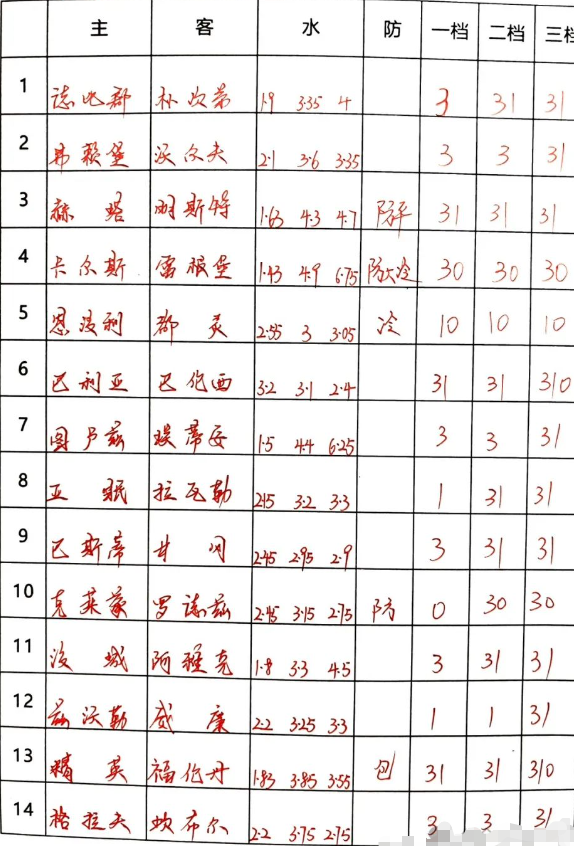 主 客 水 防 一档 二档 三档
1 诺比郡 朴次茅 1.9 3.35 4 3 31 31
2 弗赖堡 沃尔夫 2.1 3.6 3.35 3 3 31
3 赫塔 明斯特 1.63 4.3 4.7 防平 31 31 31
4 卡尔斯 雷根堡 1.43 4.9 6.75 防大冷 30 30 30
5 恩波利 都灵 2.55 3 3.05 冷 10 10 10
6 巴利亚 巴伦西 3.2 3.1 2.4 31 31 310
7 图卢兹 埃蒂安 1.5 4.4 6.25 3 3 31
8 亚眠 拉瓦勒 2.15 3.2 3.3 1 31 31
9 巴斯蒂 甘冈 2.45 2.95 2.9 3 31 31
10 克莱蒙 罗德兹 2.45 3.15 2.75 防 0 30 30
11 浚城 阿雅克 1.8 3.3 4.5 3 31 31
12 兹沃勒 威廉 2.2 3.25 3.3 1 1 31
13 精英 福伦丹 1.83 3.85 3.55 包 31 31 310
14 格拉夫 坎布尔 2.2 3.75 2.75 3 3 31